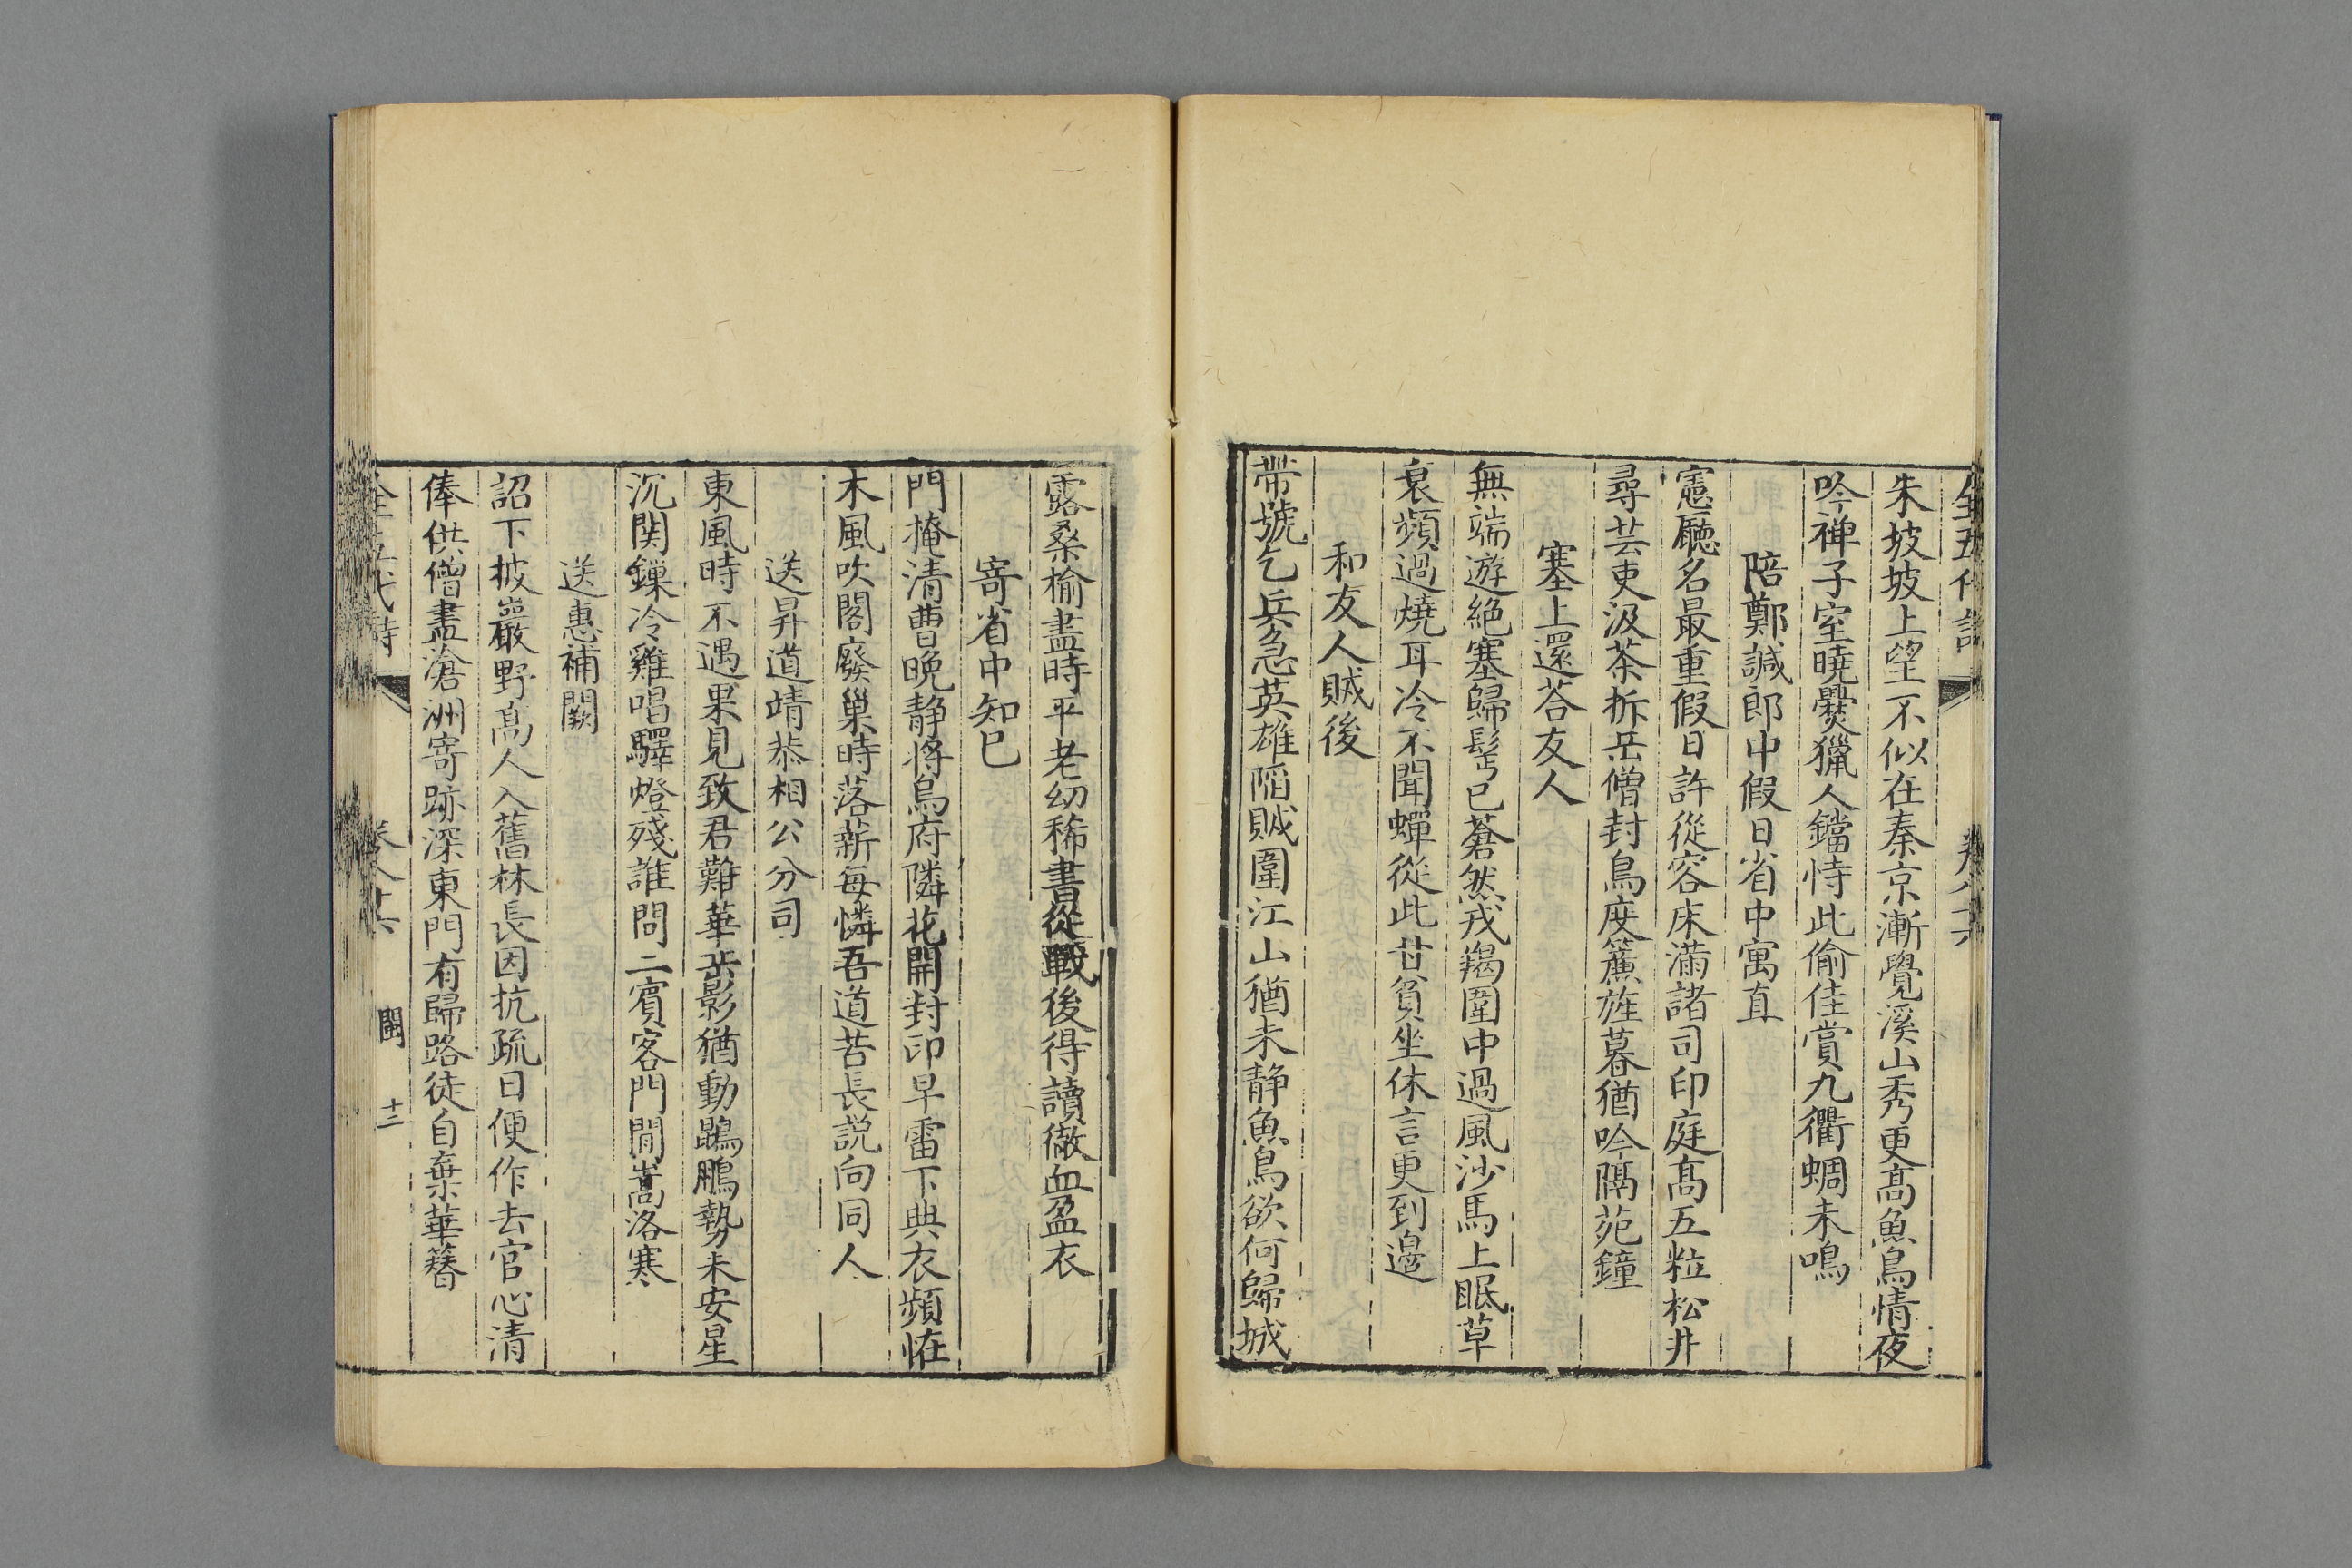 全五代詩 卷八十六
朱坡坡上望不似在秦京漸覺溪山秀更高魚鳥情夜
吟禅子室曉爨獵人鐺恃此偷佳賞九衢蜩未鳴
陪鄭諴郎中假日省中寓直
憲廳名最重假日許從容床滿諸司印庭高五粒松井
尋芸吏汲茶拆岳僧封鳥度簾旌暮猶吟隔苑鐘
塞上還荅友人
無端遊絶塞歸髩已蒼然戎羯圍中過風沙馬上眠草
衰頻過燒耳冷不聞蟬從此甘貧坐休言更到邊
和友人賊後
帶號乞兵急英雄陷賊圍江山猶未静魚鳥欲何歸城
露桑榆盡時平老幼稀書從戰後得讀徹血盈衣
寄省中知已
門掩清曹晚静將烏府隣花開封印早雪下典衣頻恠
木風吹閣廢巢時落薪每憐吾道苦長説向同人
送昇道靖恭相公分司
東風時不遇果見致君難華岳影猶動鵾鵬勢未安星
沉関鏁冷雞唱驛燈殘誰問二賓客門閒嵩洛寒
送惠補闕
詔下披巖野高人入舊林長因抗疏日便作去官心清
俸供僧盡滄洲寄跡深東門有歸路徒自棄華簪
全五代詩 卷八十六 閩 十二